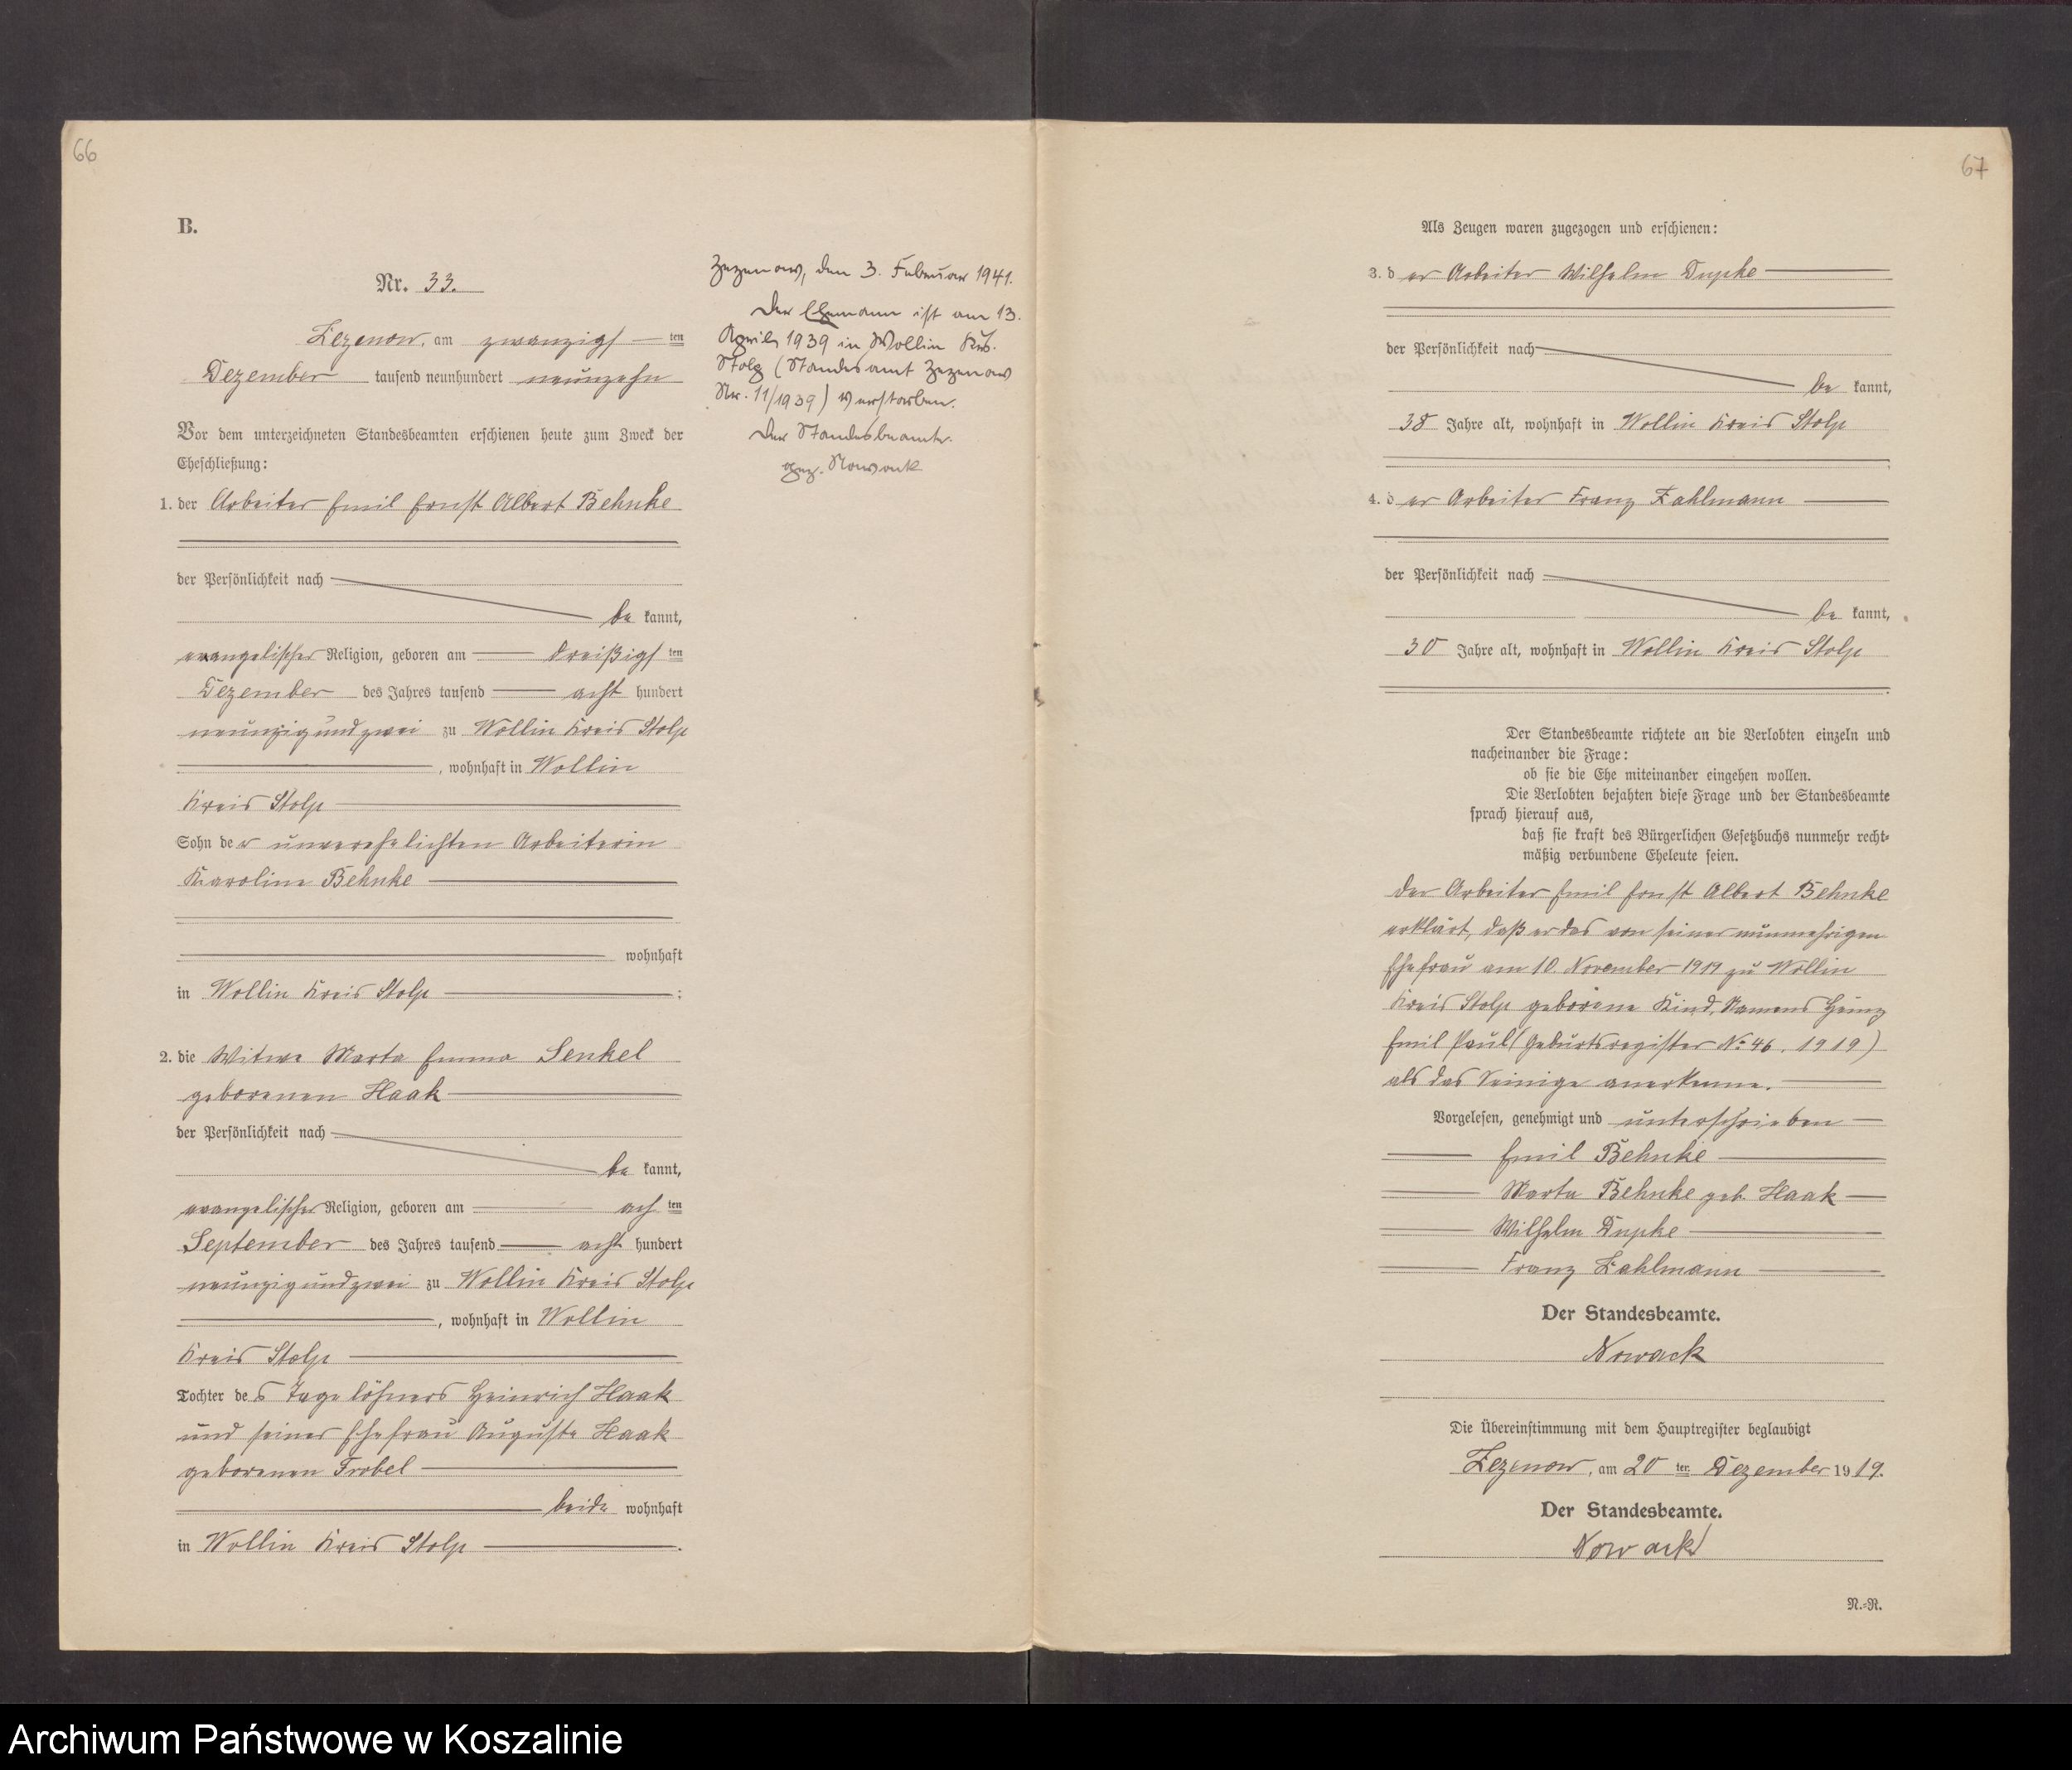 66
B.
Nr. 33.
Zezenow, am zwanzigsten
Dezember tausend neunhundert neunzehn
Vor dem unterzeichneten Standesbeamten erschienen heute zum Zweck der
Eheschließung:
1. der Arbeiter Emil Ernst Albert Behnke
der Persönlichkeit nach
be kannt,
evangelischer Religion, geboren am dreißigsten
Dezember des Jahres tausend acht hundert
neunzig und zwei zu Wollin Kreis Stolp
, wohnhaft in Wollin
Kreis Stolp
Sohn der unverehelichten Arbeiterin
Karoline Behnke
wohnhaft
in Wollin Kreis Stolp ;
2. die Witwe Marta Emma Senkel
geborenen Haak
der Persönlichkeit nach
be kannt,
evangelischer Religion, geboren am achten
September des Jahres tausend acht hundert
neunzig und zwei zu Wollin Kreis Stolp
, wohnhaft in Wollin
Kreis Stolp
Tochter des Tagelöhners Heinrich Haak
und seiner Ehefrau Auguste Haak
geborenen Frobel
beide wohnhaft
in Wollin Kreis Stolp .
Zezenow, den 3. Februar 1941.
Der Ehemann ist am 13.
April 1939 in Wollin Krs.
Stolp (Standesamt Zezenow
Nr. 11/1939) verstorben.
Der Standesbeamte.
gez. Nowack
67
Als Zeugen waren zugezogen und erschienen:
3. der Arbeiter Wilhelm Dupke
der Persönlichkeit nach
be kannt,
38 Jahre alt, wohnhaft in Wollin Kreis Stolp
4. der Arbeiter Franz Zahlmann
der Persönlichkeit nach
be kannt,
30 Jahre alt, wohnhaft in Wollin Kreis Stolp
Der Standesbeamte richtete an die Verlobten einzeln und
nacheinander die Frage:
ob sie die Ehe miteinander eingehen wollen.
Die Verlobten bejahten diese Frage und der Standesbeamte
sprach hierauf aus,
daß sie kraft des Bürgerlichen Gesetzbuchs nunmehr recht-
mäßig verbundene Eheleute seien.
Der Arbeiter Emil Ernst Albert Behnke
erklärt, daß er das von seiner nunmehrigen
Ehefrau am 10. November 1919 zu Wollin
Kreis Stolp geborene Kind, Namens Heinz
Emil Paul (Geburtsregister No 46. 1919)
als das Seinige anerkenne.
Vorgelesen, genehmigt und unterschrieben
Emil Behnke
Marta Behnke geb. Haak
Wilhelm Dupke
Franz Zahlmann
Der Standesbeamte.
Nowack
Die Übereinstimmung mit dem Hauptregister beglaubigt
Zezenow, am 20 ten Dezember 1919.
Der Standesbeamte.
Nowack
N.-R.
Archiwum Państwowe w Koszalinie